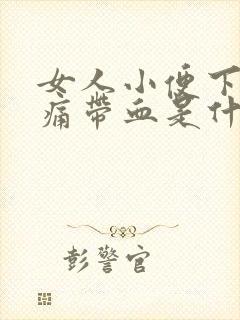 女人小便下
痛带血是什
彭警官